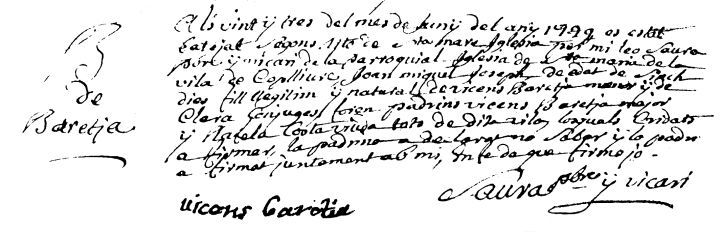 B
de
Baretja
Als vint y tres del mes de Juny del any 1799 es estat
batejat segons de sta mare Iglesia per mi leo Saura
pbre y vicari de la parroquial Iglesia de sta maria de la
vila de Coplliure Joan miquel Joseph de edat de
dies fill llegitim y natural de vicens Baretja menor y de
Clara Conjuges foren padrins vicens Baretja major
y Costa viuda tots de dita vila losquals Cridats
a firmar, la padrina a de larat no saber y lo padri
a firmat juntament ab mi, en fe de que firmo jo -
Saura pbre y vicari
vicens Baretja